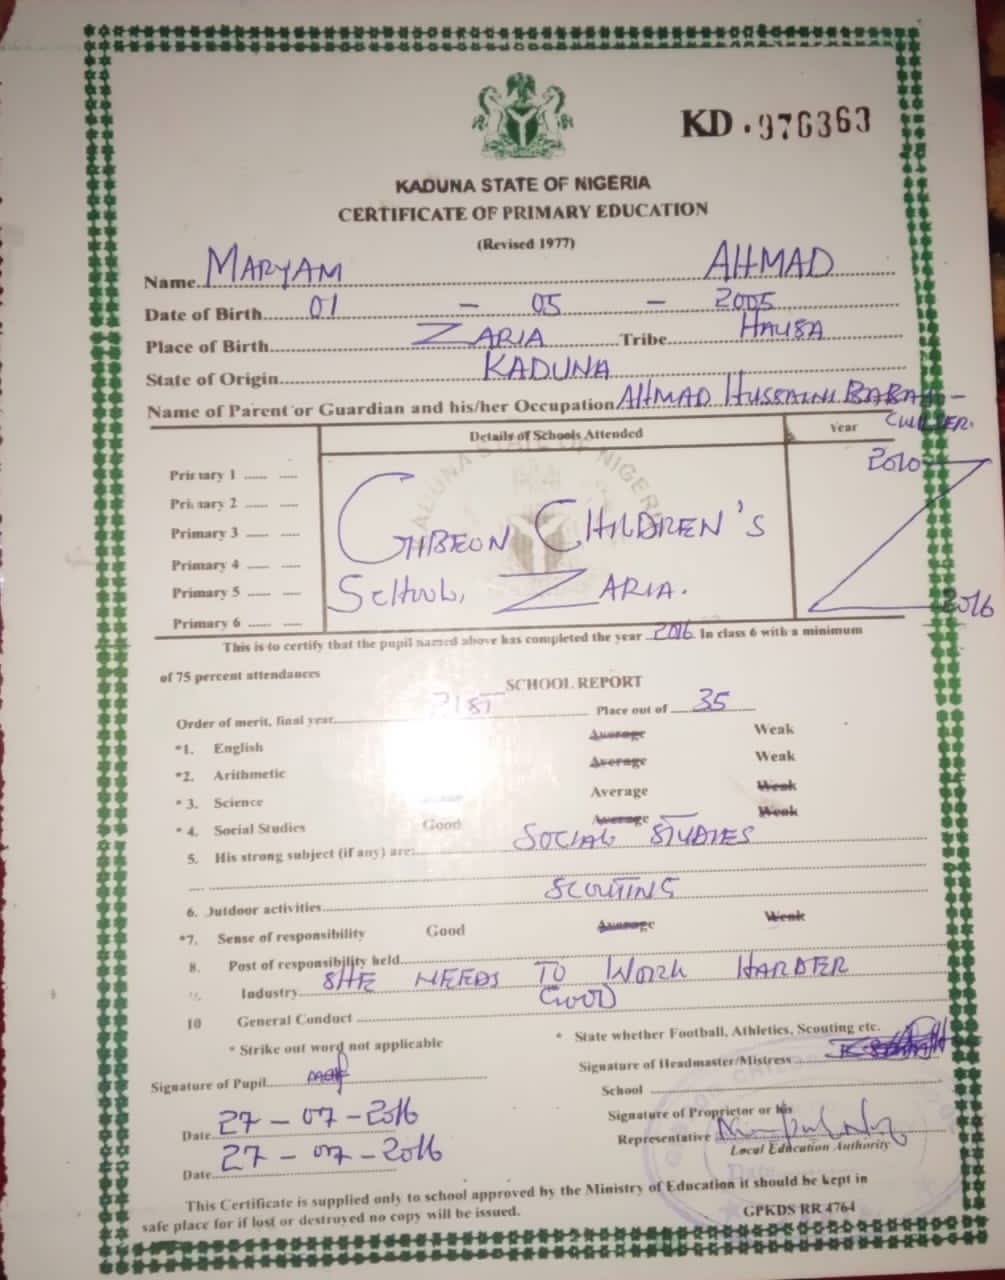 KD . 976363
KADUNA STATE OF NIGERIA
CERTIFICATE OF PRIMARY EDUCATION
(Revised 1977)
Name MARYAM AHMAD
Date of Birth 01 - 05 - 2005
Place of Birth ZARIA Tribe HAUSA
State of Origin KADUNA
Name of Parent or Guardian and his/her Occupation AHMAD HUSSAINI -
Details of Schools Attended Year
KADUNA STATE OF NIGERIA
Primary 1 2010
Primary 2
Primary 3 CHILDREN'S
Primary 4
Primary 5 SCHOOL, ZARIA.
Primary 6 2016
This is to certify that the pupil named above has completed the year 2016 In class 6 with a minimum
of 75 percent attendances
SCHOOL REPORT
Order of merit, final year 21ST Place out of 35
*1. English Average Weak
*2. Arithmetic Average Weak
*3. Science Average Weak
*4. Social Studies Good Average Weak
5. His strong subject (if any) are: SOCIAL STUDIES
6. Outdoor activities SCOUTING
*7. Sense of responsibility Good Average Weak
8. Post of responsibility held
Industry SHE NEEDS TO WORK HARDER
10 General Conduct GOOD
* Strike out word not applicable * State whether Football, Athletics, Scouting etc.
Signature of Pupil Signature of Headmaster/Mistress
School
Date 27 - 07 - 2016 Signature of Proprietor or his
Representative
Local Education Authority
Date 27 - 07 - 2016
This Certificate is supplied only to school approved by the Ministry of Education it should be kept in
safe place for if lost or destroyed no copy will be issued. GPKDS RR 4764